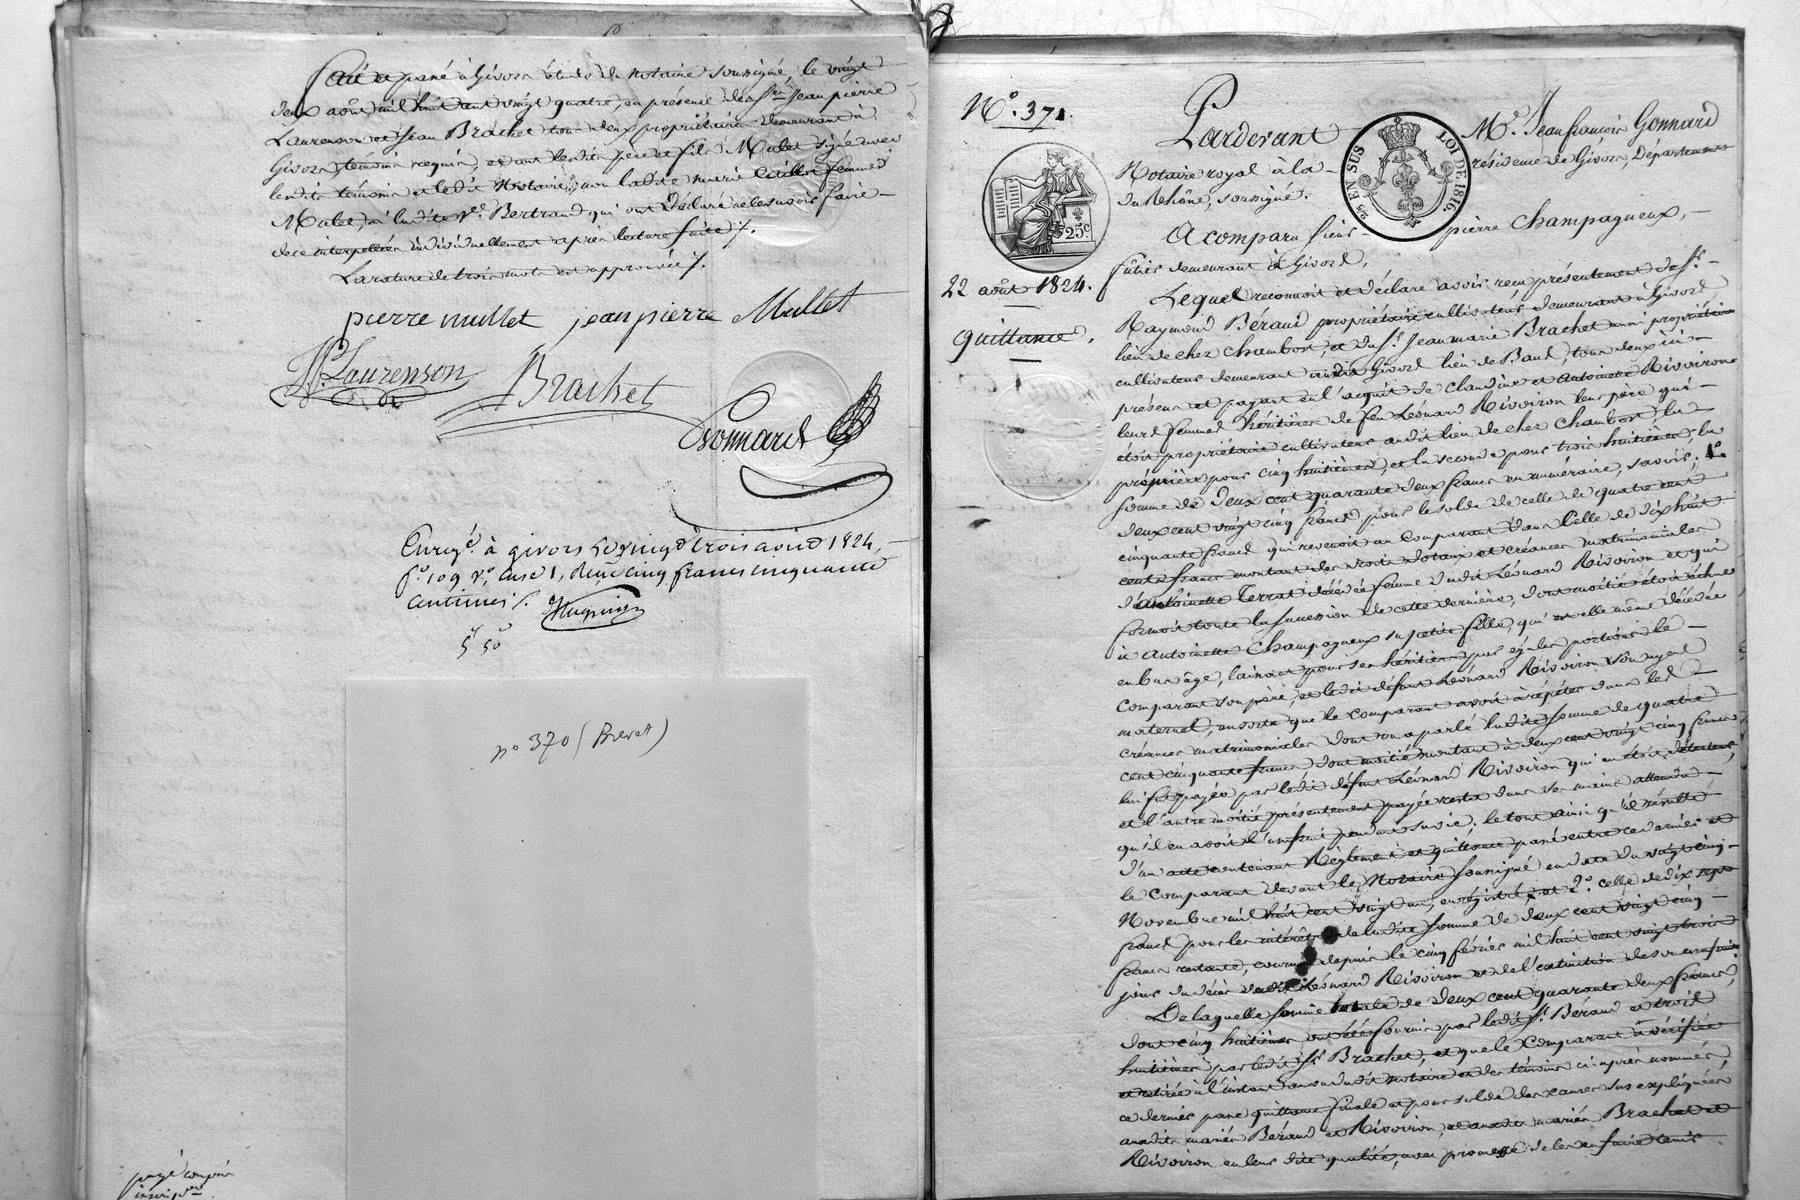 fait et passé à Givors étude du notaire soussigné, le vingt
deux août mil huit cent vingt quatre, en présence des Srs Jean pierre
Laurenson et Jean Brachet tous deux propriétaires demeurant à
Givors témoins requis, et ont lesdits père et fils Mulet signé avec
lesdits témoins et ledit Notaire, non ladite marie femme
Mulet, ni ladite Ve. Bertrand qui ont déclaré ne le savoir faire
de ce interpellées individuellement après lecture faite /.
La rature de trois mots est approuvée /.
pierre mullet jean pierre Mullet
JP. Laurenson
Brachet
Gonnard
Enregé. à givors le vingt trois août 1824,
fo. 109 vo. Case 1, Reçu cinq francs cinquante
centimes /.
5f 50c
no 370 (Brevet)
payé
No. 371.
22 août 1824.
Quittance.
25c
25 EN SUS
LOI DE 1816.
Pardevant Me. Jean françois Gonnard
Notaire royal à la résidence de Givors Département
du Rhône, soussigné.
A comparu sieur pierre Champagneux,
futier demeurant à Givors,
Lequel reconnoit et déclare avoir reçu présentement du Sr.
Raymond Béraud propriétaire cultivateur demeurant à Givors
lieu de chez Chambost, et du Sr. Jean marie Brachet aussi propriétaire
cultivateur demeurant audit Givors lieu de Bans, tous deux ici
présens et payant en l'acquit de Claudine et Antoinette Rivoiron
leurs femmes héritières de feu Léonard Rivoiron leur père qui
étoit propriétaire cultivateur audit lieu de chez Chambost la
première pour cinq huitièmes, et la seconde pour trois huitièmes, la
somme de deux cent quarante deux francs en numéraire, savoir; 1o
deux cent vingt cinq francs pour le solde de celle de quatre cent
cinquante francs qui revenoit au Comparant dans celle de dix huit
cents francs montant des droits dotaux et créances matrimoniales
d'Antoinette Terrat décédée femme dudit Léonard Rivoiron et qui
formoit toute la succession de cette dernière, dont moitié étoit échue
à Antoinette Champagneux sa petite fille, qui est elle même décédée
en bas âge, laissant pour ses héritiers par égales portions le
Comparant son père, et ledit défunt Léonard Rivoiron son ayeul
maternel, ensorte que le comparant avoit à répéter dans les
créances matrimoniales dont on a parlé ladite somme de quatre
cent cinquante francs dont moitié montant à deux cent vingt cinq francs
lui fut payée par ledit défunt Léonard Rivoiron qui en étoit détenteur,
et l'autre moitié présentement payée resta dans ses mains attendu
qu'il en avoit l'usufruit pendant sa vie; le tout ainsi qu'il résulte
d'un acte contenant Règlement et quittance passé entre ce dernier et
le comparant devant le Notaire soussigné en date du vingt cinq
Novembre mil huit cent vingt un, enregistré; et 2o. celle de dix sept
francs pour les intérêts de ladite somme de deux cent vingt cinq
francs restante, courus depuis le cinq février mil huit cent vingt trois
jour du décès dudit Léonard Rivoiron et de l'extinction de son usufruit.
De laquelle somme totale de deux cent quarante deux francs,
dont cinq huitièmes ont été fournis par ledit Sr. Béraud et trois
huitièmes par ledit Sr. Brachet, et que le Comparant a vérifiée
et retirée à l'instant au vu dudit notaire et des témoins ci après nommés,
ce dernier passe quittance finale et pour solde des causes sus expliquées
auxdits mariés Béraud et Rivoiron, et auxdits mariés Brachet et
Rivoiron en leur dite qualité, avec promesse de les en faire tenir